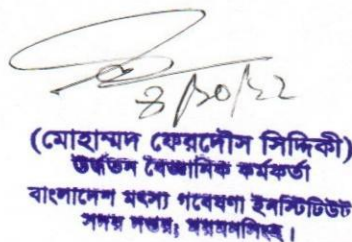 ৪/১০/২২
(মোহাম্মদ ফেরদৌস সিদ্দিকী)
ঊর্ধ্বতন বৈজ্ঞানিক কর্মকর্তা
বাংলাদেশ মৎস্য গবেষণা ইনস্টিটিউট
সদর দপ্তর, ময়মনসিংহ।